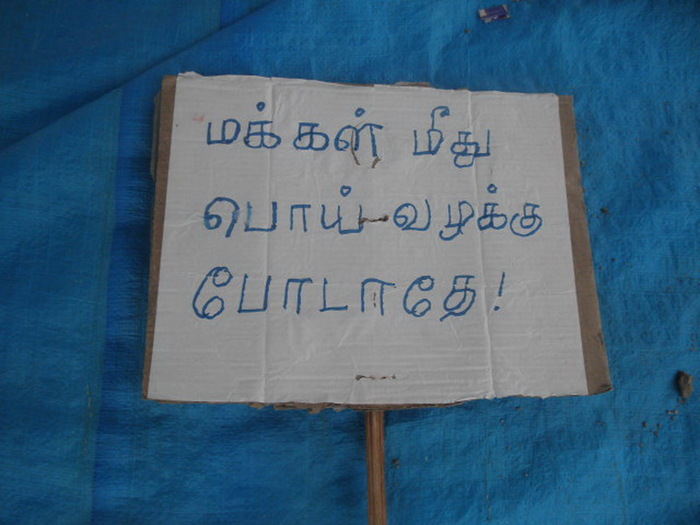 மக்கள் மீது
பொய் வழக்கு
போடாதே!